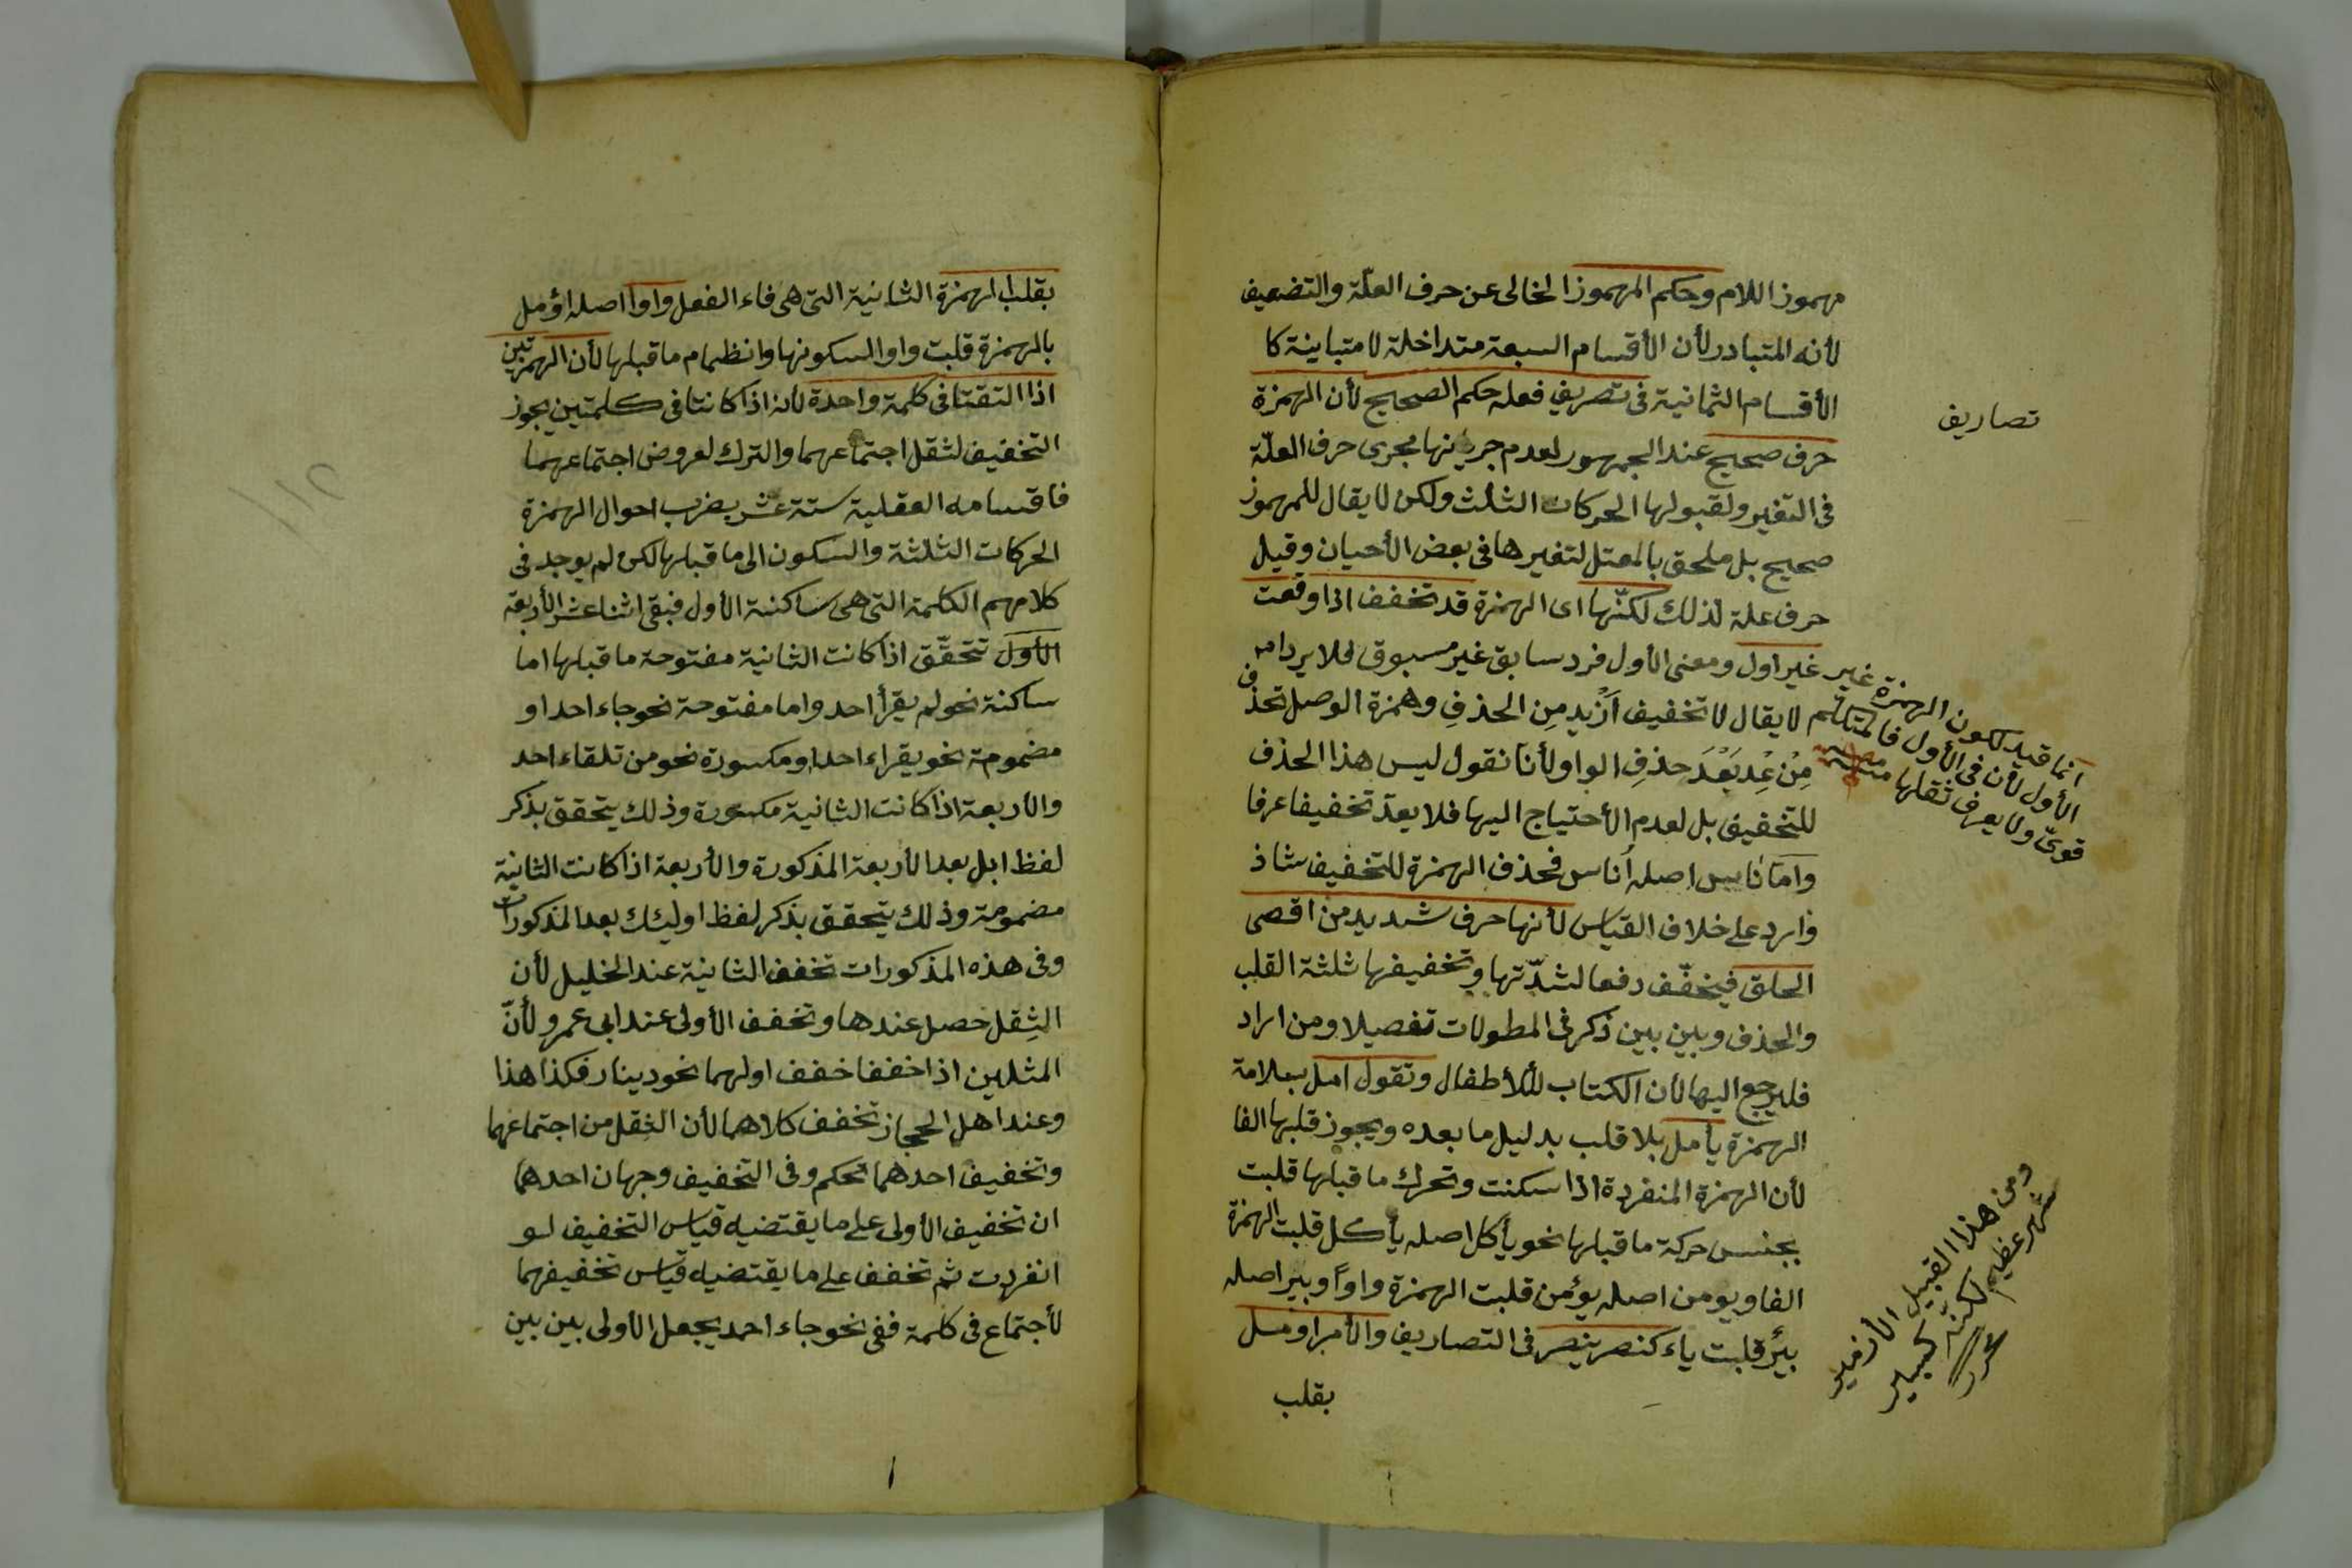 مهموز اللام وحكم المهموز الخالى عن حرف العلّة والتضعيف
لأنه المتبادر لأن الأقسام السبعة متداخلة لا متباينة كا
الأقسام الثمانية فى تصريف فعله حكم الصحيح لأن الهمزة
تصاريف
حرف صحيح عند الجمهور لعدم جريانها مجرى حرف العلّة
فى التغير ولقبولها الحركات الثلث ولكن لا يقال للمهموز
صحيح بل ملحق بالمعتل لتغيرها فى بعض الأحيان وقيل
حرف علة لذلك لكنّها اى الهمزة قد تخفف اذا وقعت
غير غير اول ومعنى الأول فرد سابق غير مسبوق لخلا يرد امه
لا يقال لا تخفيف أزْيد مِن الحذفِ وهمزة الوصل تحذف
مِنْ عِدْ بَعْدَ حذفِ الواو لأنا نقول ليس هذا الحذف
للتخفيف بل لعدم الأحتياج اليها فلا يعدّ تخفيفا عرفا
وامّا نَاس اصله أُناس فحذف الهمزة للتخفيف شاذ
وارد على خلاف القياس لأنها حرف شديد من اقصى
الحلق فيخفّف دفعا لشدّتها وتخفيفها ثلثة القلب
والحذف وبين بين ذكر فى المطولات تفصيلا ومن اراد
فليرجع اليها لأن الكتاب للأطفال وتقول امل بعلامة
الهمزة يأمل بلا قلب بدليل ما بعده ويجوز قلبها الفا
لأن الهمزة المنفردة اذا سكنت وتحرك ما قبلها قلبت
بجنس حركة ما قبلها نحو يأكل اصله يأكل قلبت الهمزة
الفا ويومن اصله يؤمن قلبت الهمزة واوًا وبير اصله
بئر قلبت ياء كنصر ينصر فى التصاريف والأمر اومل
بقلب
انما قيد لكون الهمزة
الأول لأن فى الأول فالمتكلم
قوىّ ولا يعرف ثقلها
ومن هذا القبيل
شهر عظيم لكنّه كبير
بقلب الهمزة الثانية التى هى فاء الفعل واوا اصله اؤمل
بالهمزة قلبت واوا لسكونها وانظمام ما قبلها لأن الهمزتين
اذا التقتا فى كلمة واحدة لأنه اذا كانتا فى كلمتين يجوز
التخفيف لثقل اجتماعهما والترك لعروض اجتماعهما
فاقسامه العقلية ستة عشر بضرب احوال الهمزة
الحركات الثلثة والسكون الى ما قبلها لكن لم يوجد فى
كلامهم الكلمة التى هى ساكنة الأول فبقى اثنا عشر الأربعة
الأول تتحقّق اذا كانت الثانية مفتوحة ما قبلها اما
ساكنة نحو لم يقرأ احد واما مفتوحة نحو جاء احد او
مضمومة نحو يقراء احد او مكسورة نحو من تلقاء احد
والأربعة اذا كانت الثانية مكسورة وذلك يتحقق بذكر
لفظ ابل بعد الأربعة المذكورة والأربعة اذا كانت الثانية
مضمومة وذلك يتحقق بذكر لفظ اوليئك بعد المذكورات
وفى هذه المذكورات تخفف الثانية عند الخليل لأن
الثِقل حصل عندها وتخفف الأولى عند ابى عمرو لأنّ
المثلين اذا خففا خفف اولهما نحو دينار فكذا هذا
وعند اهل الحجاز تخفف كلاهما لأن الثقل من اجتماعهما
وتخفيف احدهما تحكم وفى التخفيف وجهان احدهما
ان تخفيف الأولى على ما يقتضيه قياس التخفيف لو
انفردت ثم تخفف على ما يقتضيه قياس تخفيفهما
لأجتماع فى كلمة ففى نحو جاء احد يجعل الأولى بين بين